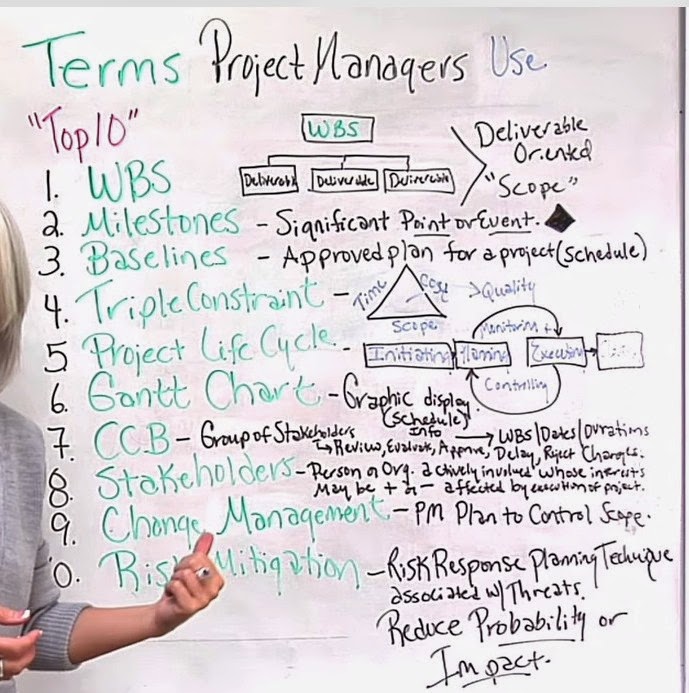 Terms Project Managers Use
"Top10"
WBS
Deliverable Deliverable Deliverable
Deliverable
Oriented
"Scope"
1. WBS
2. Milestones - Significant Point or Event.
3. Baselines - Approved plan for a project (Schedule)
4. Triple Constraint - Time Cost Scope > Quality
5 Project Life Cycle - Initiating Planning Executing
Monitoring +
Controlling
6. Gantt Chart - Graphic display
(Schedule)
Info → WBS/Dates/Durations
7. CCB - Group of Stakeholders
Review, Evaluate, Approve, Delay, Reject Changes.
8. Stakeholders - Person or Org. actively involved whose interests
May be + or - affected by execution of project.
9. Change Management - PM Plan to Control Scope.
0. Risk Mitigation - Risk Response Planning Technique
associated w/ Threats.
Reduce Probability or
Impact.